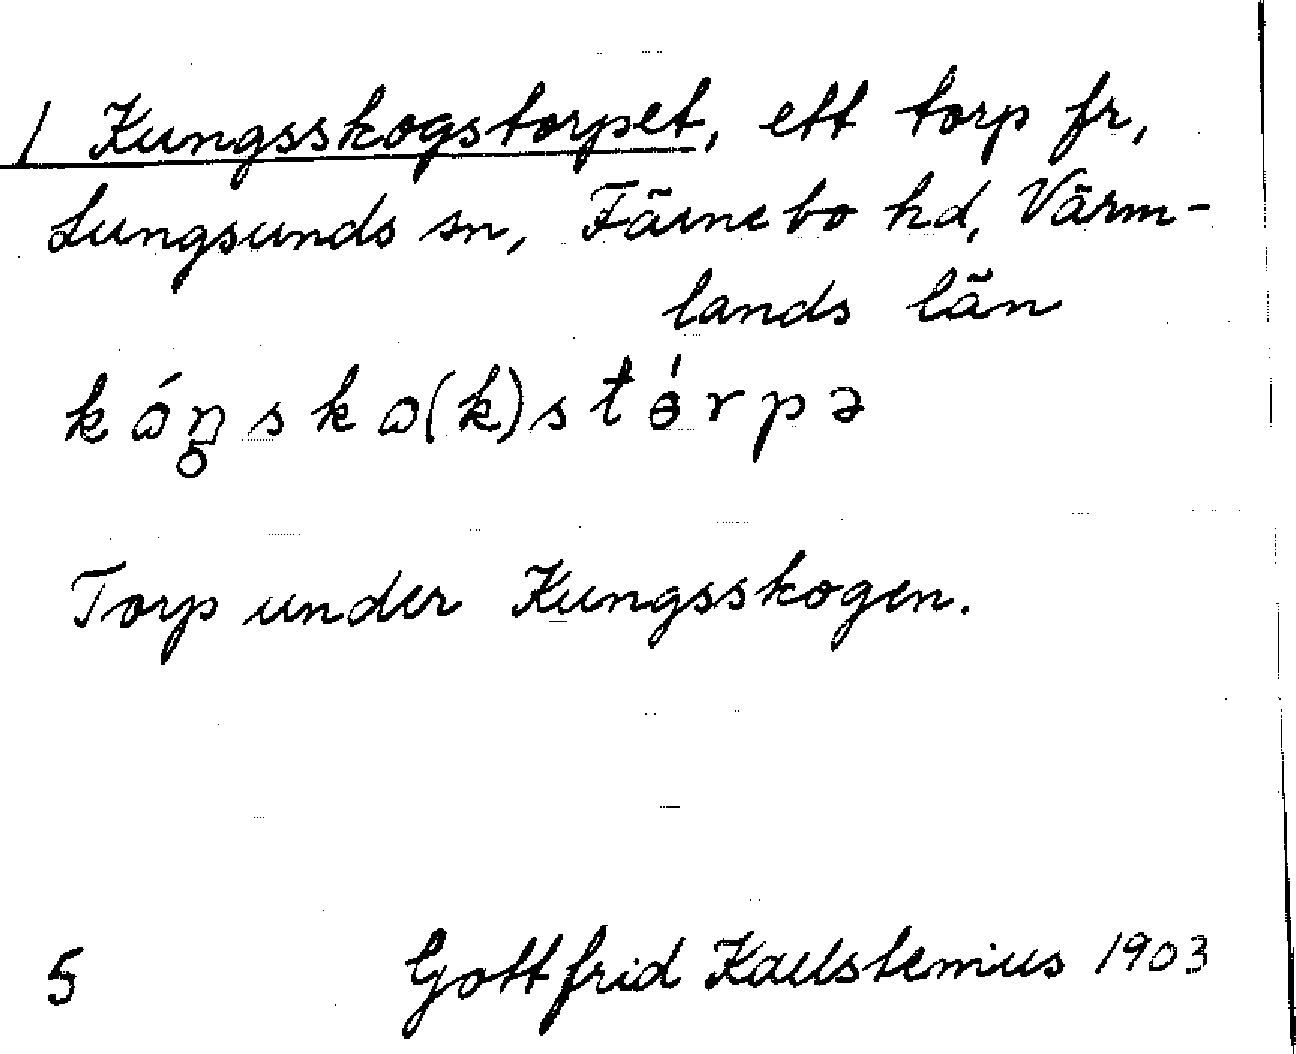 1 Kungsskogstorpet, ett torp fr,
Lungsunds sn, Färnebo hd, Värm-
lands län
kóŋskɷ(k)stórpə
Torp under Kungsskogen.
5 Gottfrid Kallstenius 1903